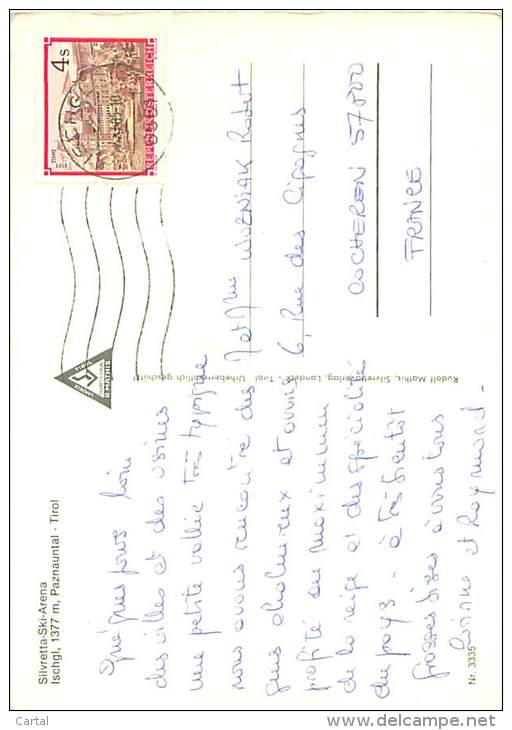 Silvretta-Ski-Arena
Ischgl, 1377 m, Paznauntal - Tirol
Quelques jours loin
des villes et des usines
une petite vallée très typique
nous avons rencontré des
gens chaleureux et avons
profité au maximum
de la neige et des spécialités
du pays - à très bientôt
grosses bises à vous tous
et Raymond -
Nr. 3335
TIROL
R. MATHIS
Rudolf Mathis, Silvretta-Verlag, Landeck - Tirol Urheberrechtlich geschützt
4 S
REPUBLIK ÖSTERREICH
ISCHGL
M et Mme WOZNIAK Robert
6, Rue des Cigognes
COCHEREN 57800
FRANCE
Cartal
www.delcampe.net